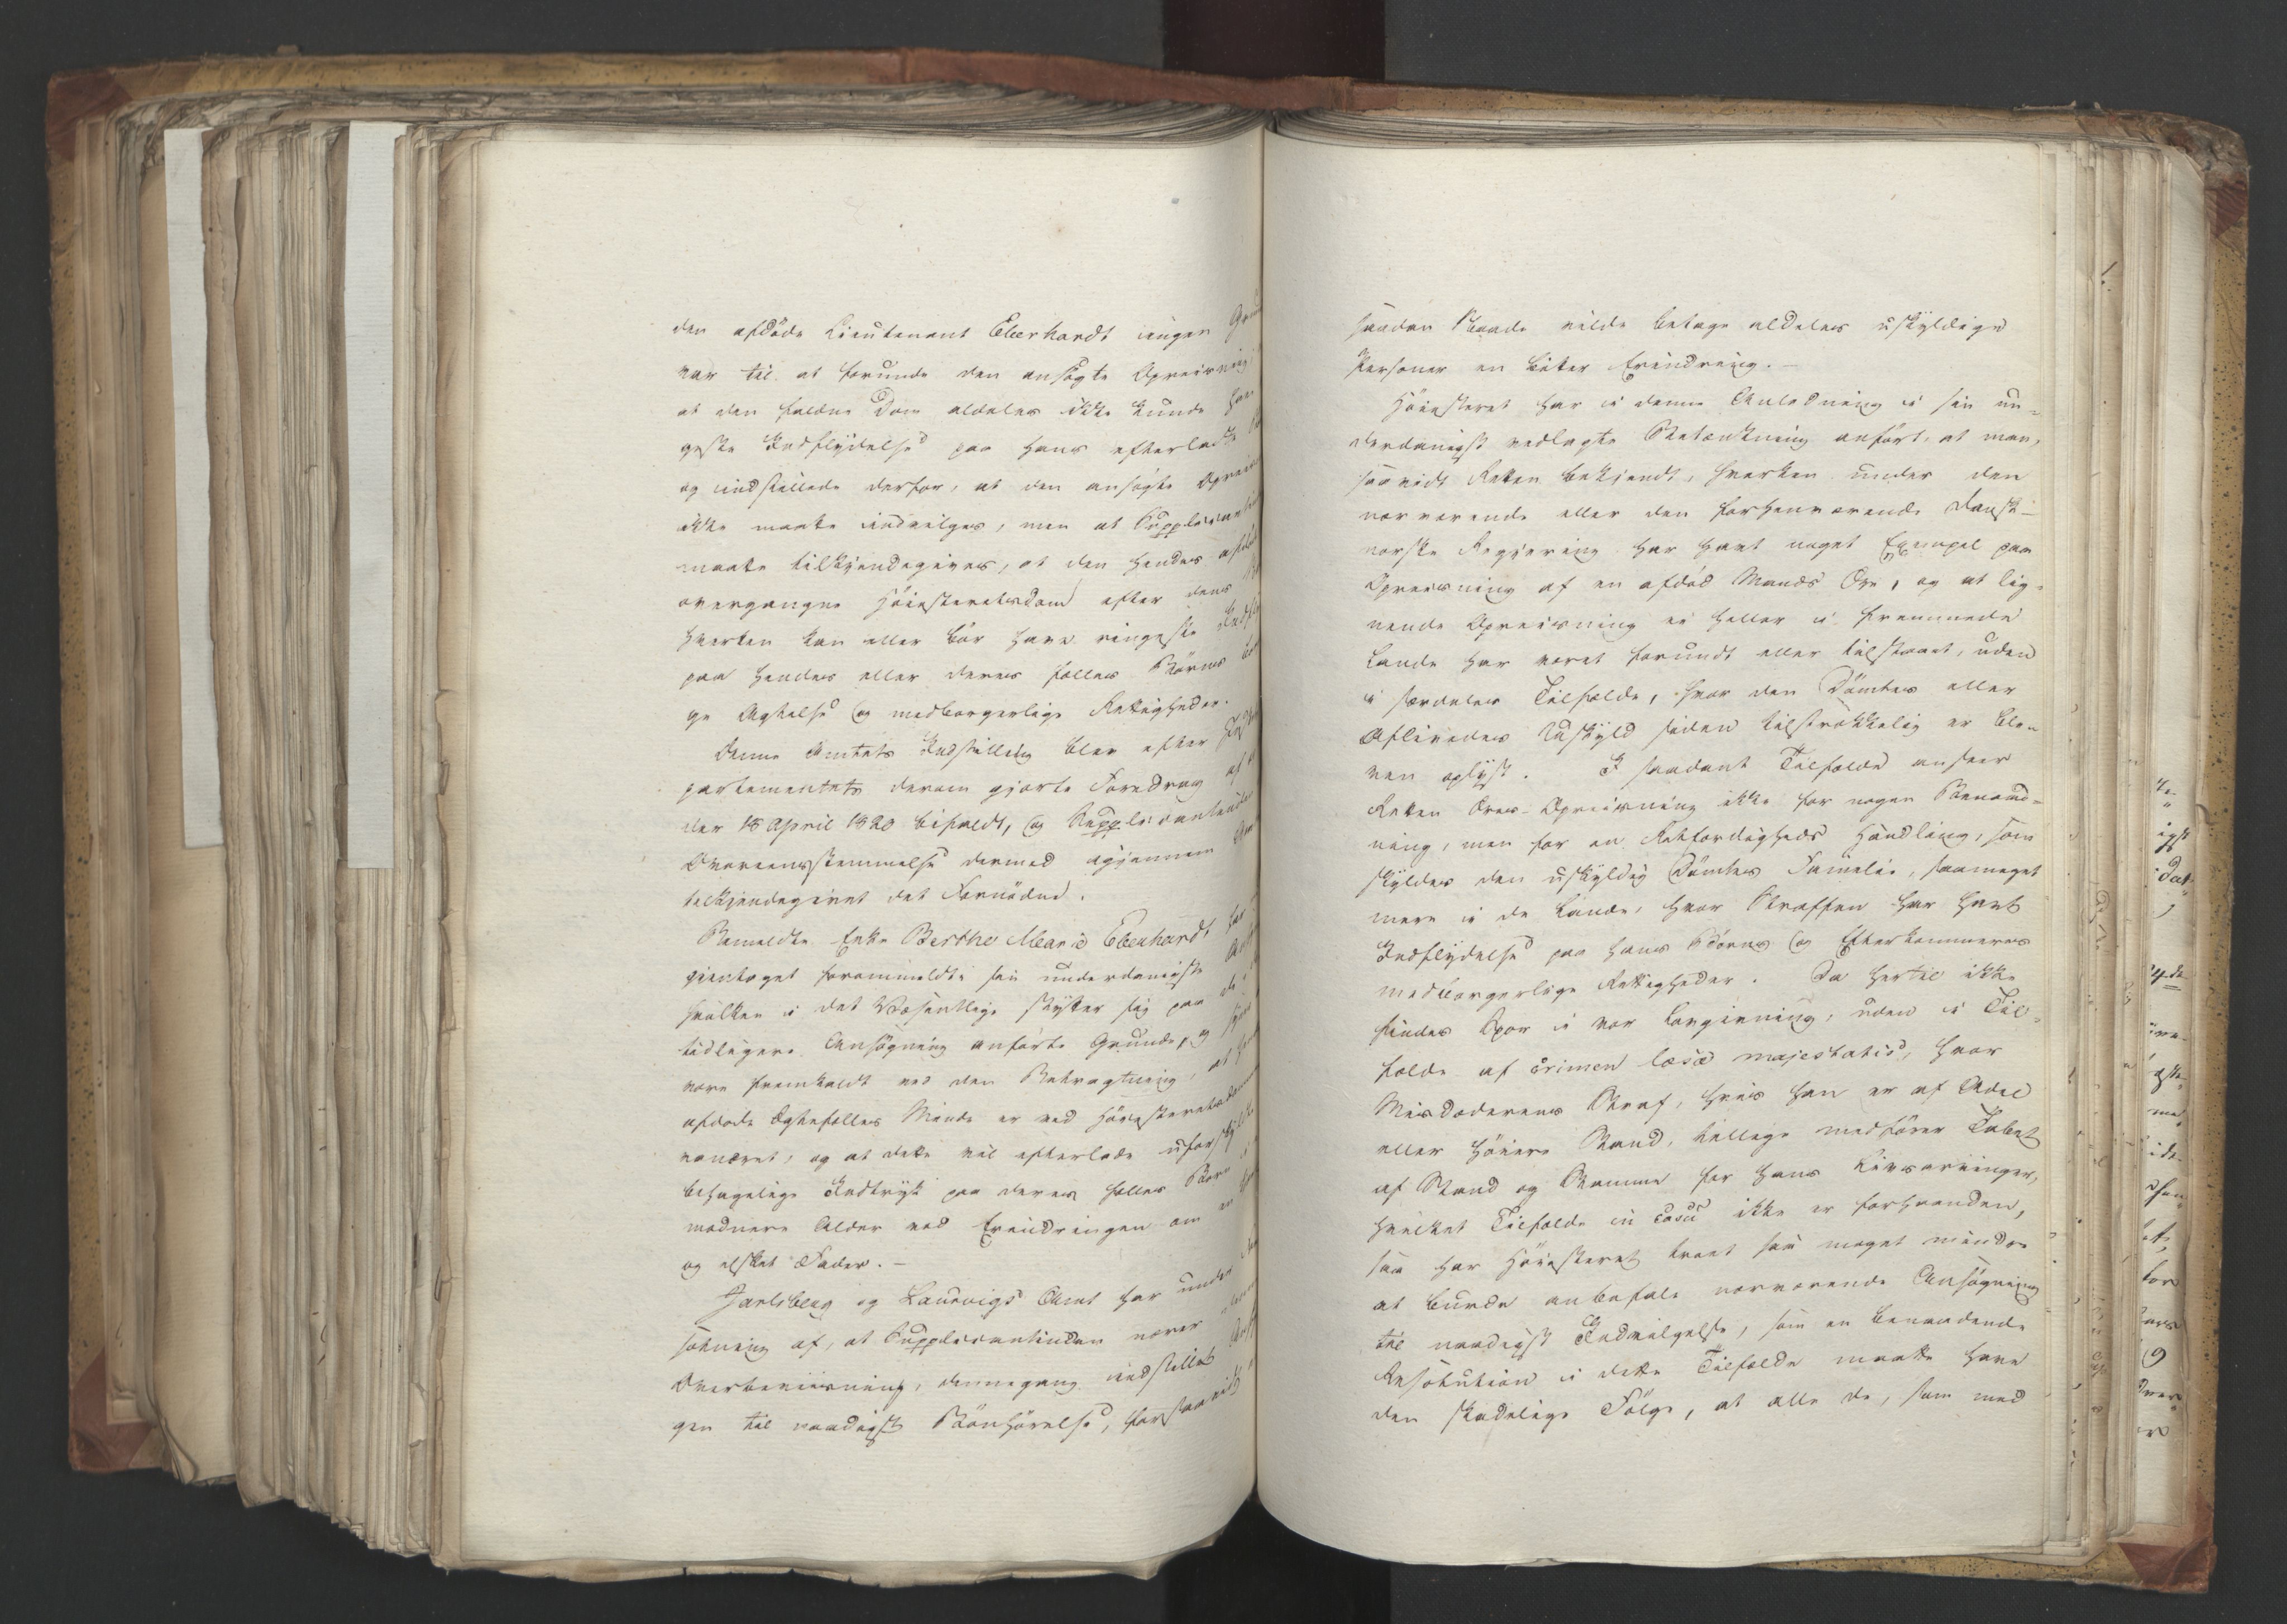 den afdøde Lieutenant Eberhardt ingen
var til at forunde den ansøgte Opreisning
at den faldne Dom aldeles ikke kunde
geste Indflydelse paa hans efterladte
og indstillede derfor, at den ansøgte
ikke maatte indvilges, men at Supplicantinden
maatte tilkjendegives, at den hendes
overgangne Høiesteretsdom efter dens
hverken kan eller bør have ringeste
paa hendes eller deres fælles Børns
ge Agtelse og medborgerlige Rettigheder.
Denne Amtets Indstilling blev efter
partementets derom gjorte Foredrag af
der 18 April 1820 bifaldt, og Supplicantinden
Overeensstemmelse dermed igjennem
tilkjendegivet det Fornødne.
Bemeldte Enke Berthe Marie Eberhardt har
gjentaget forommeldte sin underdanigste
hvilken i det Væsentlige støtter sig paa de i
tidligere Ansøgning anførte Grunde, og
være fremkaldt ved den Betragtning, at
afdøde Ægtefælles Minde er ved Høiesteretsdommen
vanæret, og at dette vil efterlade uforskyldte
behagelige Indtryk paa deres fælles Børn i
modnere Alder ved Erindringen om en
og elsket Fader. —
Jarlsberg og Laurvigs Amt har under
sætning af, at Supplicantinden nærer
Overbeviisning, dennegang indstillet
gen til naadigst Bønhørelse, forsaavidt
saadan Skaande vilde betage aldeles uskyldige
Personer en bitter Erindring. —
Høiesteret har i denne Anledning i sin un-
derdanigst vedlagte Betænkning anført, at man,
saavidt Retten bekjendt, hverken under den
nærværende eller den forhenværende dansk-
norske Regjering har havt noget Exempel paa
Opreisning af en afdød Mands Ære, og at lig-
nende Opreisning ei heller i fremmede
Lande har været forundt eller tilstaaet, uden
i særdeles Tilfælde, hvor den Dømtes eller
Aflivedes Uskyld siden tilstrækkelig er ble-
ven oplyst. I saadant Tilfælde anseer
Retten Æres-Opreisning ikke for nogen Benaad-
ning, men for en Retfærdigheds Handling, som
skyldes den uskyldig Dømtes Familie, saameget
mere i de Lande, hvor Straffen har havt
Indflydelse paa hans Børns og Efterkommeres
medborgerlige Rettigheder. Da hertil ikke
findes Spor i vor Lovgivning, uden i Til-
fælde af crimen læsæ majestatis, hvor
Misdæderens Straf, hvis han er af Adel
eller høiere Stand, tillige medfører Tabet
af Stand og Stamme for hans Livsarvinger,
hvilket Tilfælde in casu ikke er forhaanden,
saa har Høiesteret troet saa meget mindre
at burde anbefale nærværende Ansøgning
til naadigst Indvilgelse, som en benaadende
Resolution i dette Tilfælde maatte have
den skadelige Følge, at alle de, som med